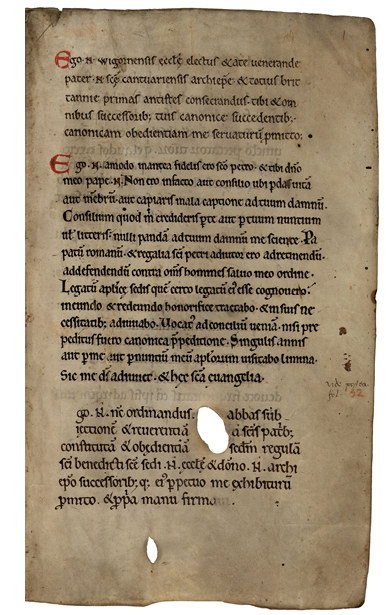 Ego .N. Wigornensis eccłe electus & a te uenerande
pater .N. sc̄e cantuariensis archiep̄e & totius brit
tannie primas antistes consecrandus. tibi & om
nibus successorib; tuis canonice succedentib;
canonicam obedientiam me seruaturū p̄mitto;
Ego .N. amodo inantea fidelis ero sc̄o petro. & tibi dn̄o
meo pape .N. Non ero in facto aut consilio ubi p̄das uitā
aut mēbrū. aut capiaris mala captione ad tuum damnū.
Consilium quod m̄ credideris p̄ te aut p̄ tuum nuntium
ut litteris. nulli pandā ad tuum damnū me sciente. Pa
patū romanū. & regalia sc̄i petri adiutor ero ad retinendū.
ad defendendū contra om̄s homines saluo meo ordine.
Legatū aplicę sedis quē certo legatū eī esse cognouero.
in eundo & redeundo honorifice tractabo. & in suis ne
cessitatib; adiuuabo. Uocat' ad conciliū ueniā. nisi pre
peditus fuero canonica p̄peditione. Singulis annis
aut p̄ me aut p̄ nuntiū meū apl̄orum uisitabo limina.
Sic me dī adiuuet. & hec sc̄a euangelia.
go .N. ordinandus. abbas sub
iectionē & reuerentiā a sc̄is patrib;
constitutā & obedientiā sc̄dm regulā
sc̄i benedicti sc̄e sedi .N. eccłę & dōno .N. archi
ep̄o successorib; q; ei' p̄petuo me exhibiturū
p̄mitto. & p̄p̄a manu firma
fol. 52